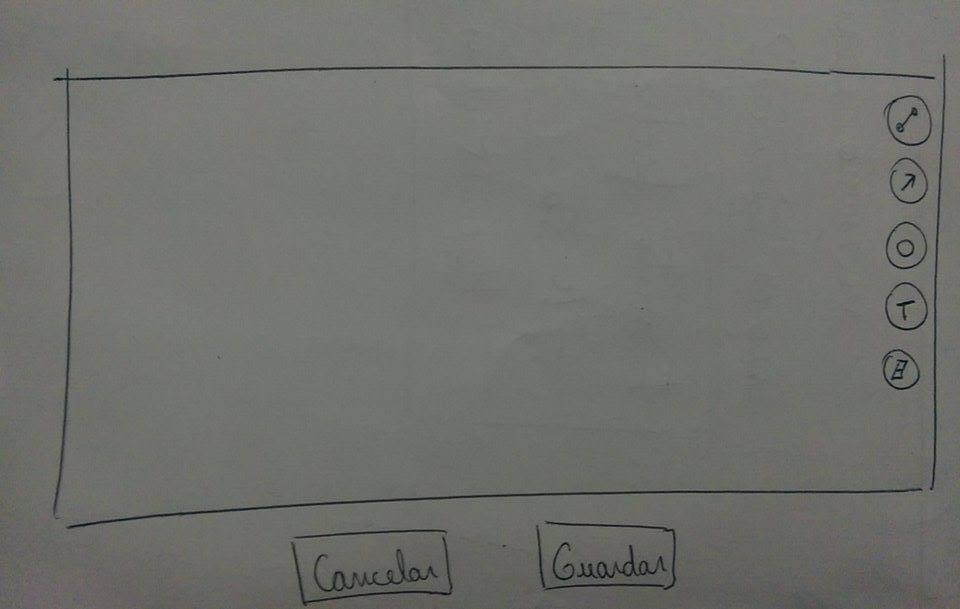 T
Cancelar Guardar